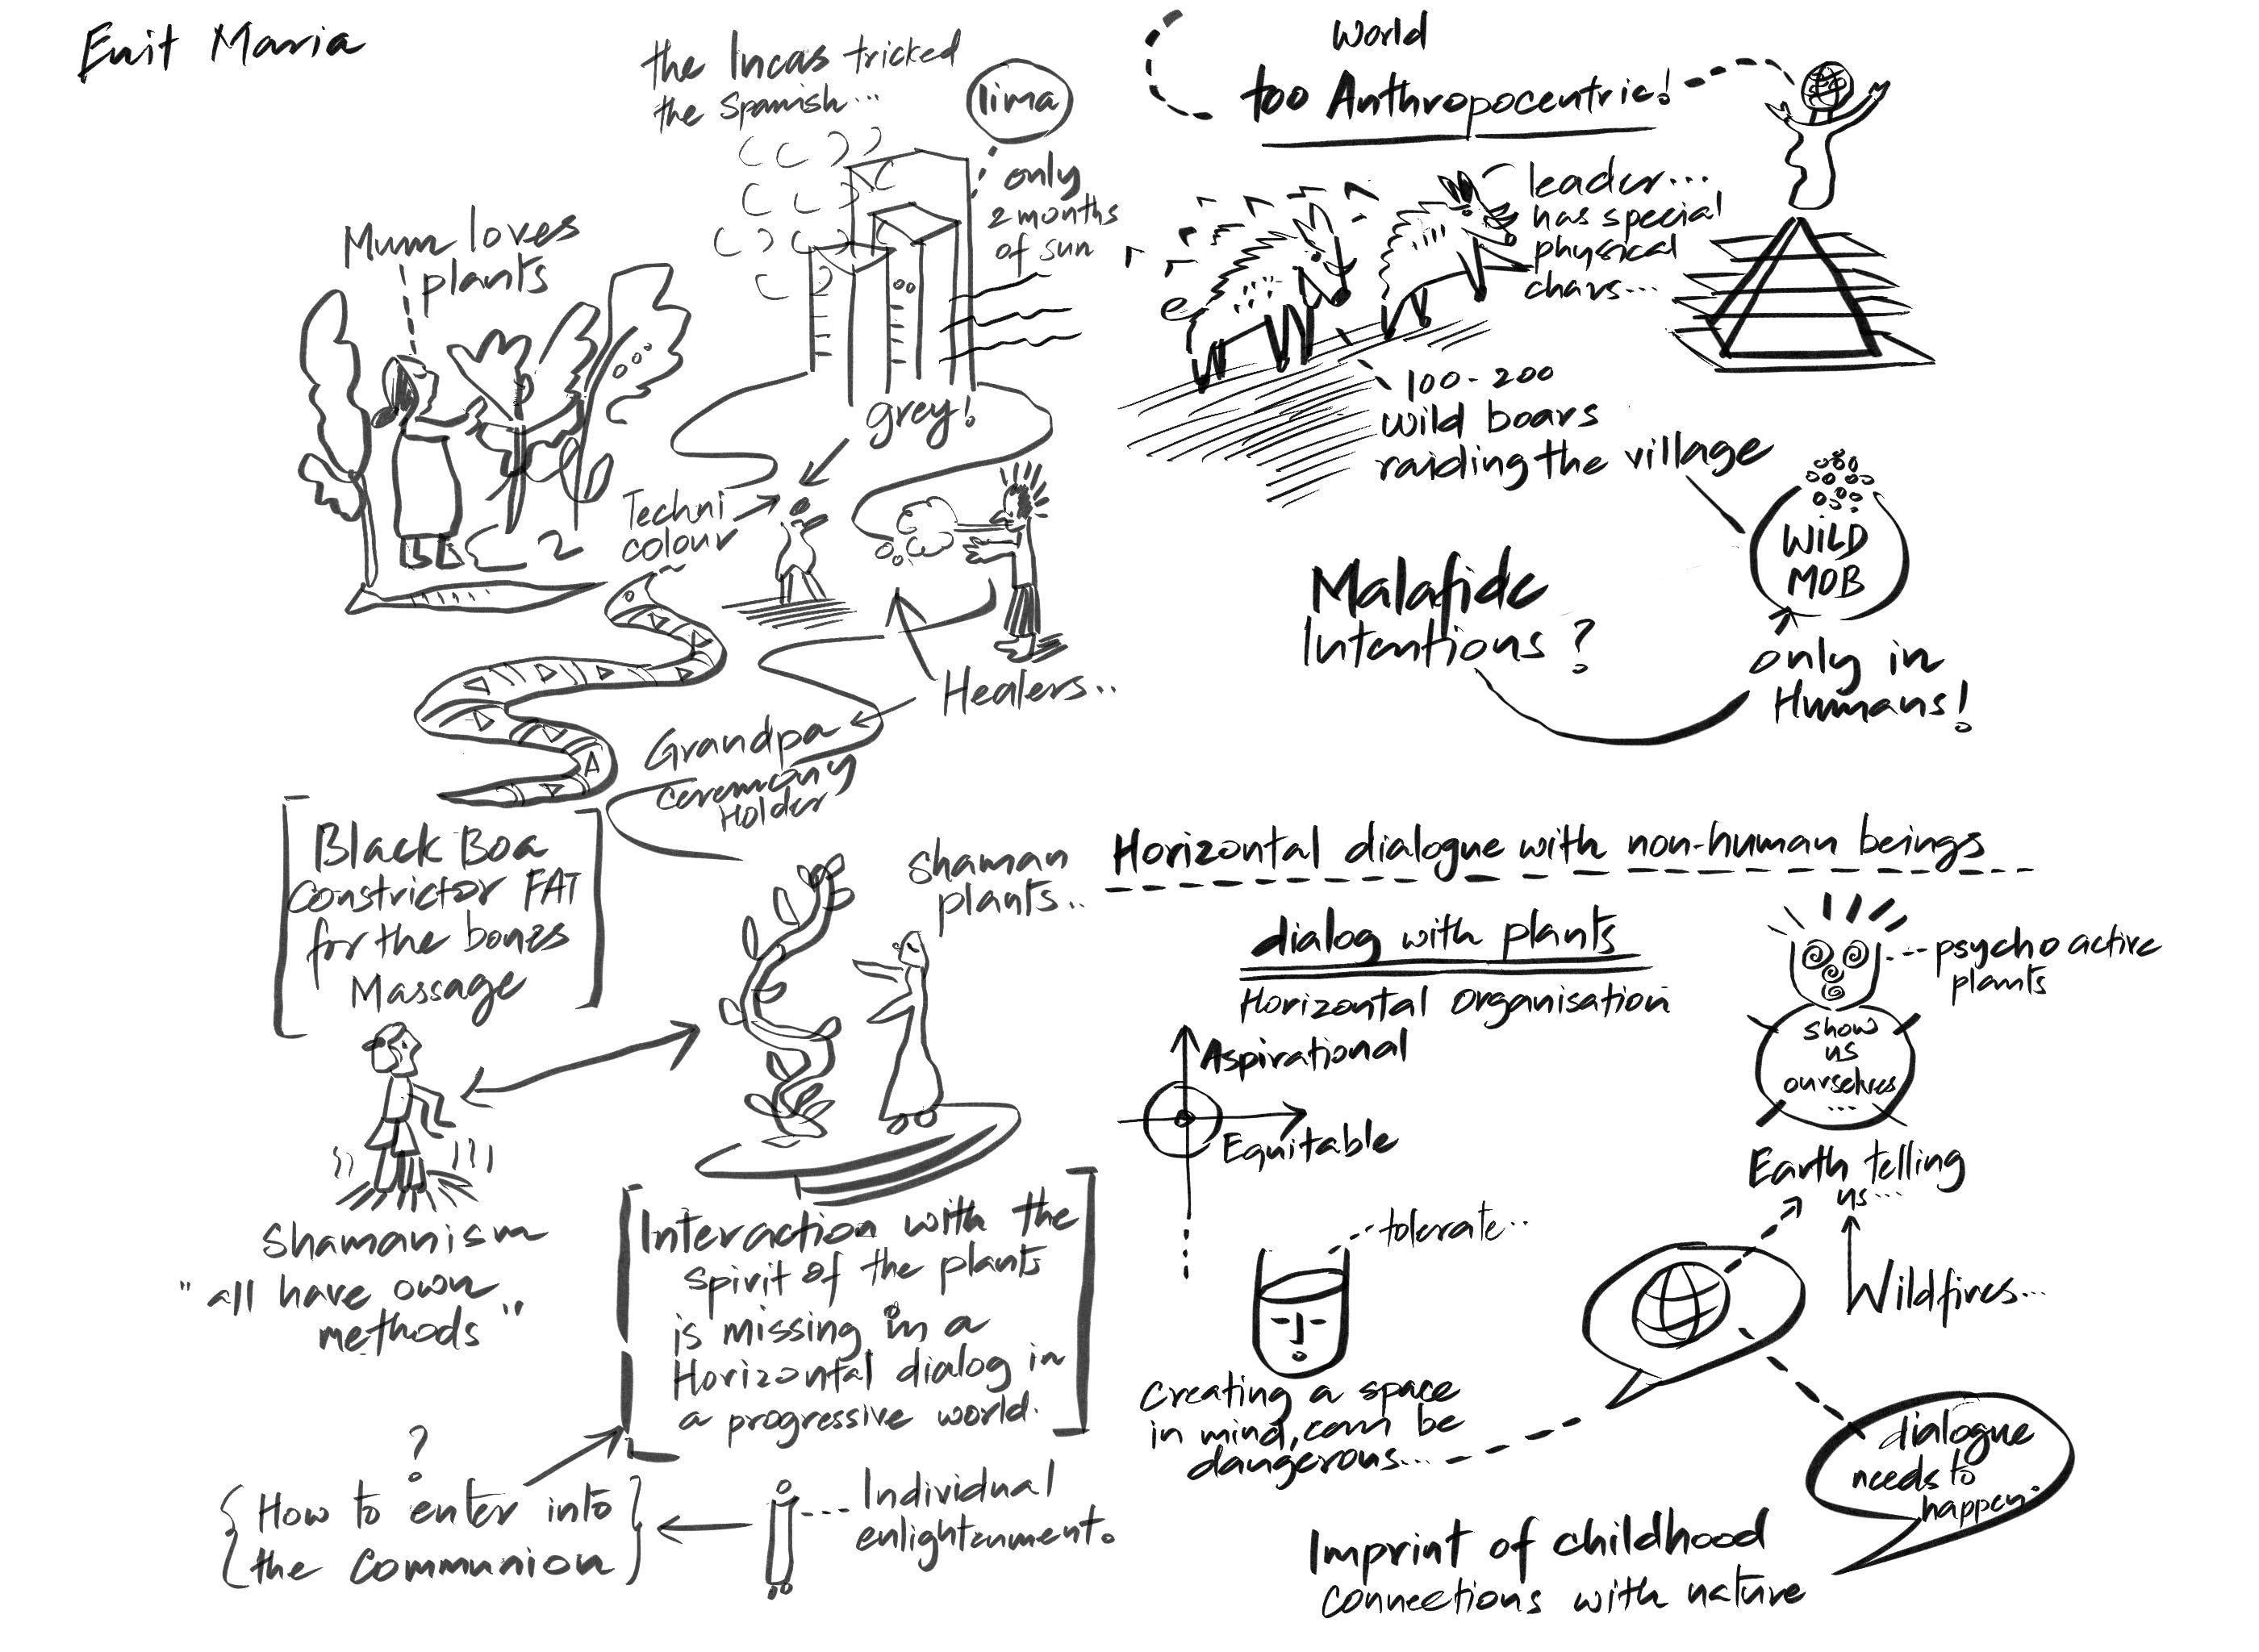 Enit Maria
the Incas tricked
the Spanish...
lima
only
2 months
of sun
Mum loves
plants
grey!
Techni
colour
Healers..
Grandpa
Ceremony
Holder
Black Boa
Constrictor FAT
for the bones
Massage
shaman
plants..
Shamanism
"all have own
methods"
Interaction with the
Spirit of the plants
is missing in a
Horizontal dialog in
a progressive world.
?
{How to enter into
the Communion}
Individual
enlightenment.
World
too Anthropocentric!
leader...
has special
physical
chars...
100-200
wild boars
raiding the village
WILD
MOB
Malafide
Intentions?
only in
Humans!
Horizontal dialogue with non-human beings
dialog with plants
Horizontal Organisation
Aspirational
Equitable
psychoactive
plants
show
us
ourselves
...
Earth telling
us...
Wildfires...
tolerate..
Creating a space
in mind, can be
dangerous...
dialogue
needs to
happen.
Imprint of childhood
connections with nature